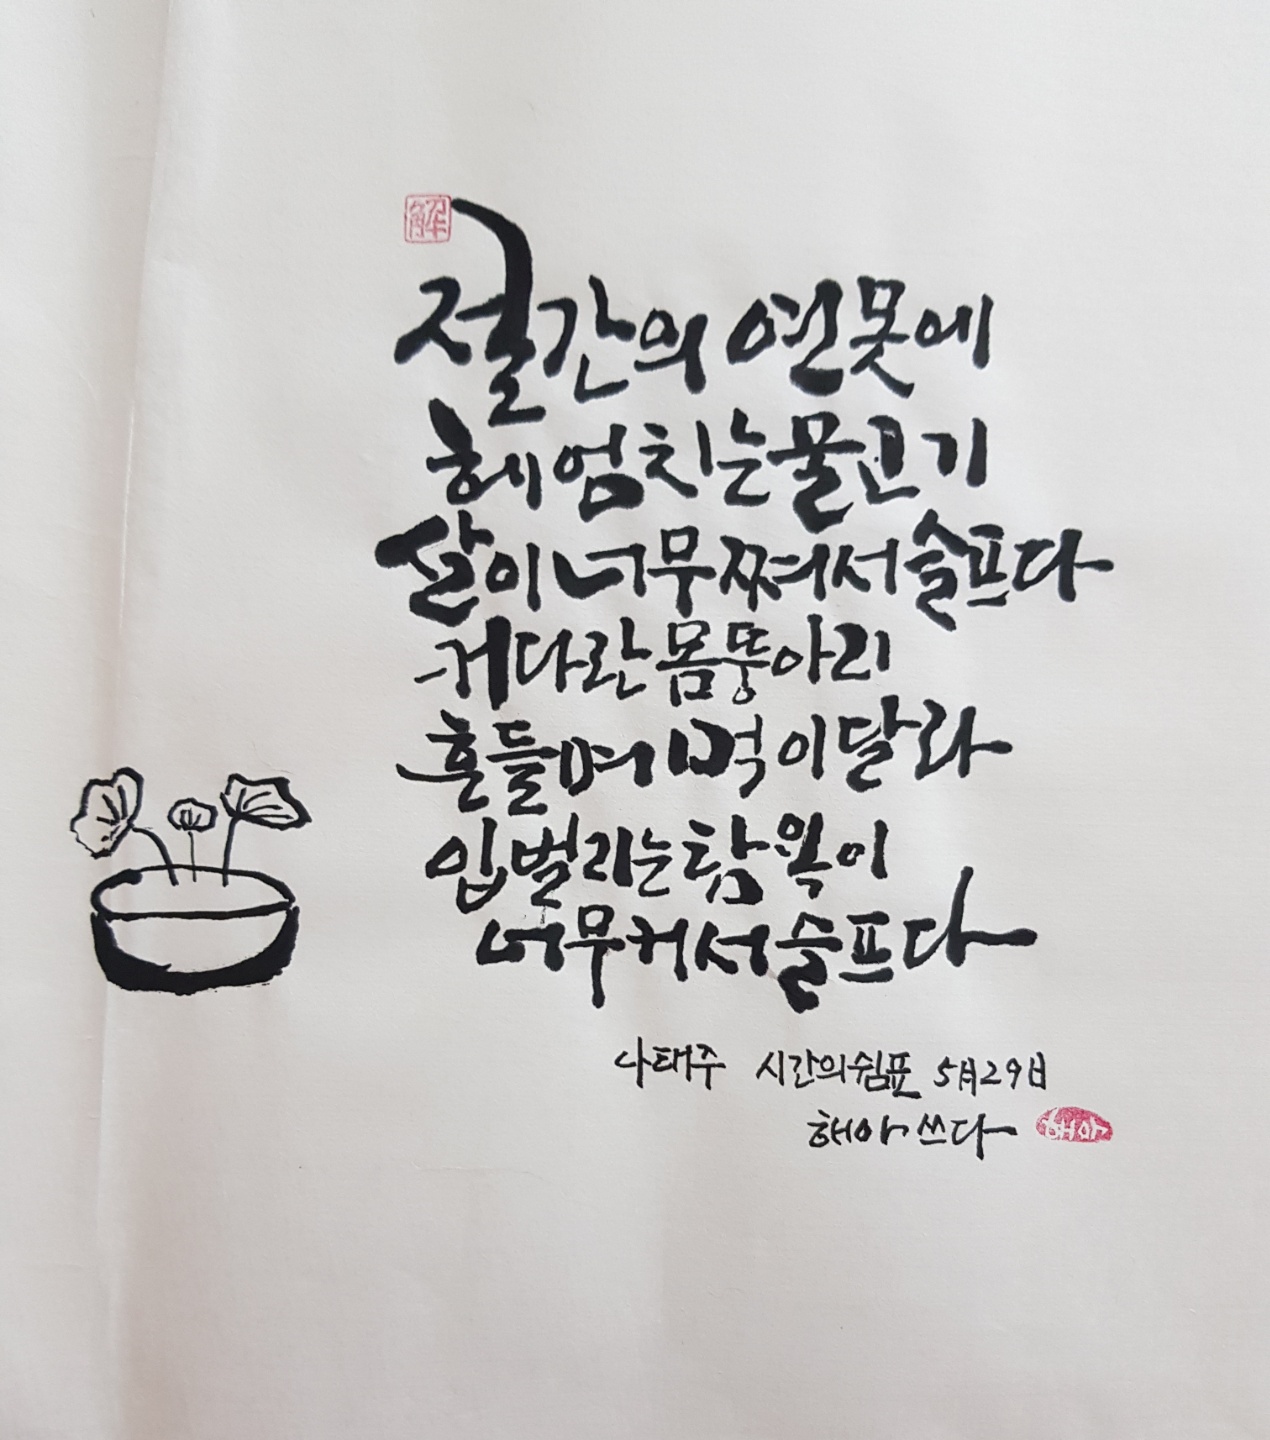 解
절간의 연못에
헤엄치는 물고기
살이 너무 쪄서 슬프다
커다란 몸뚱아리
흔들며 먹이 달라
입 벌리는 탐욕이
너무 커서 슬프다
나태주 시간의 쉼표 5月29日
해아 쓰다 해아